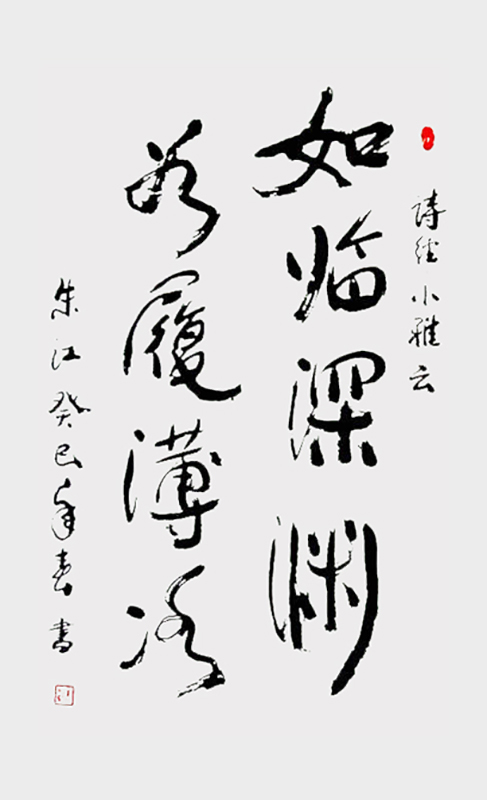 詩經小雅云
如临深渊
若履薄冰
朱江癸巳年春書